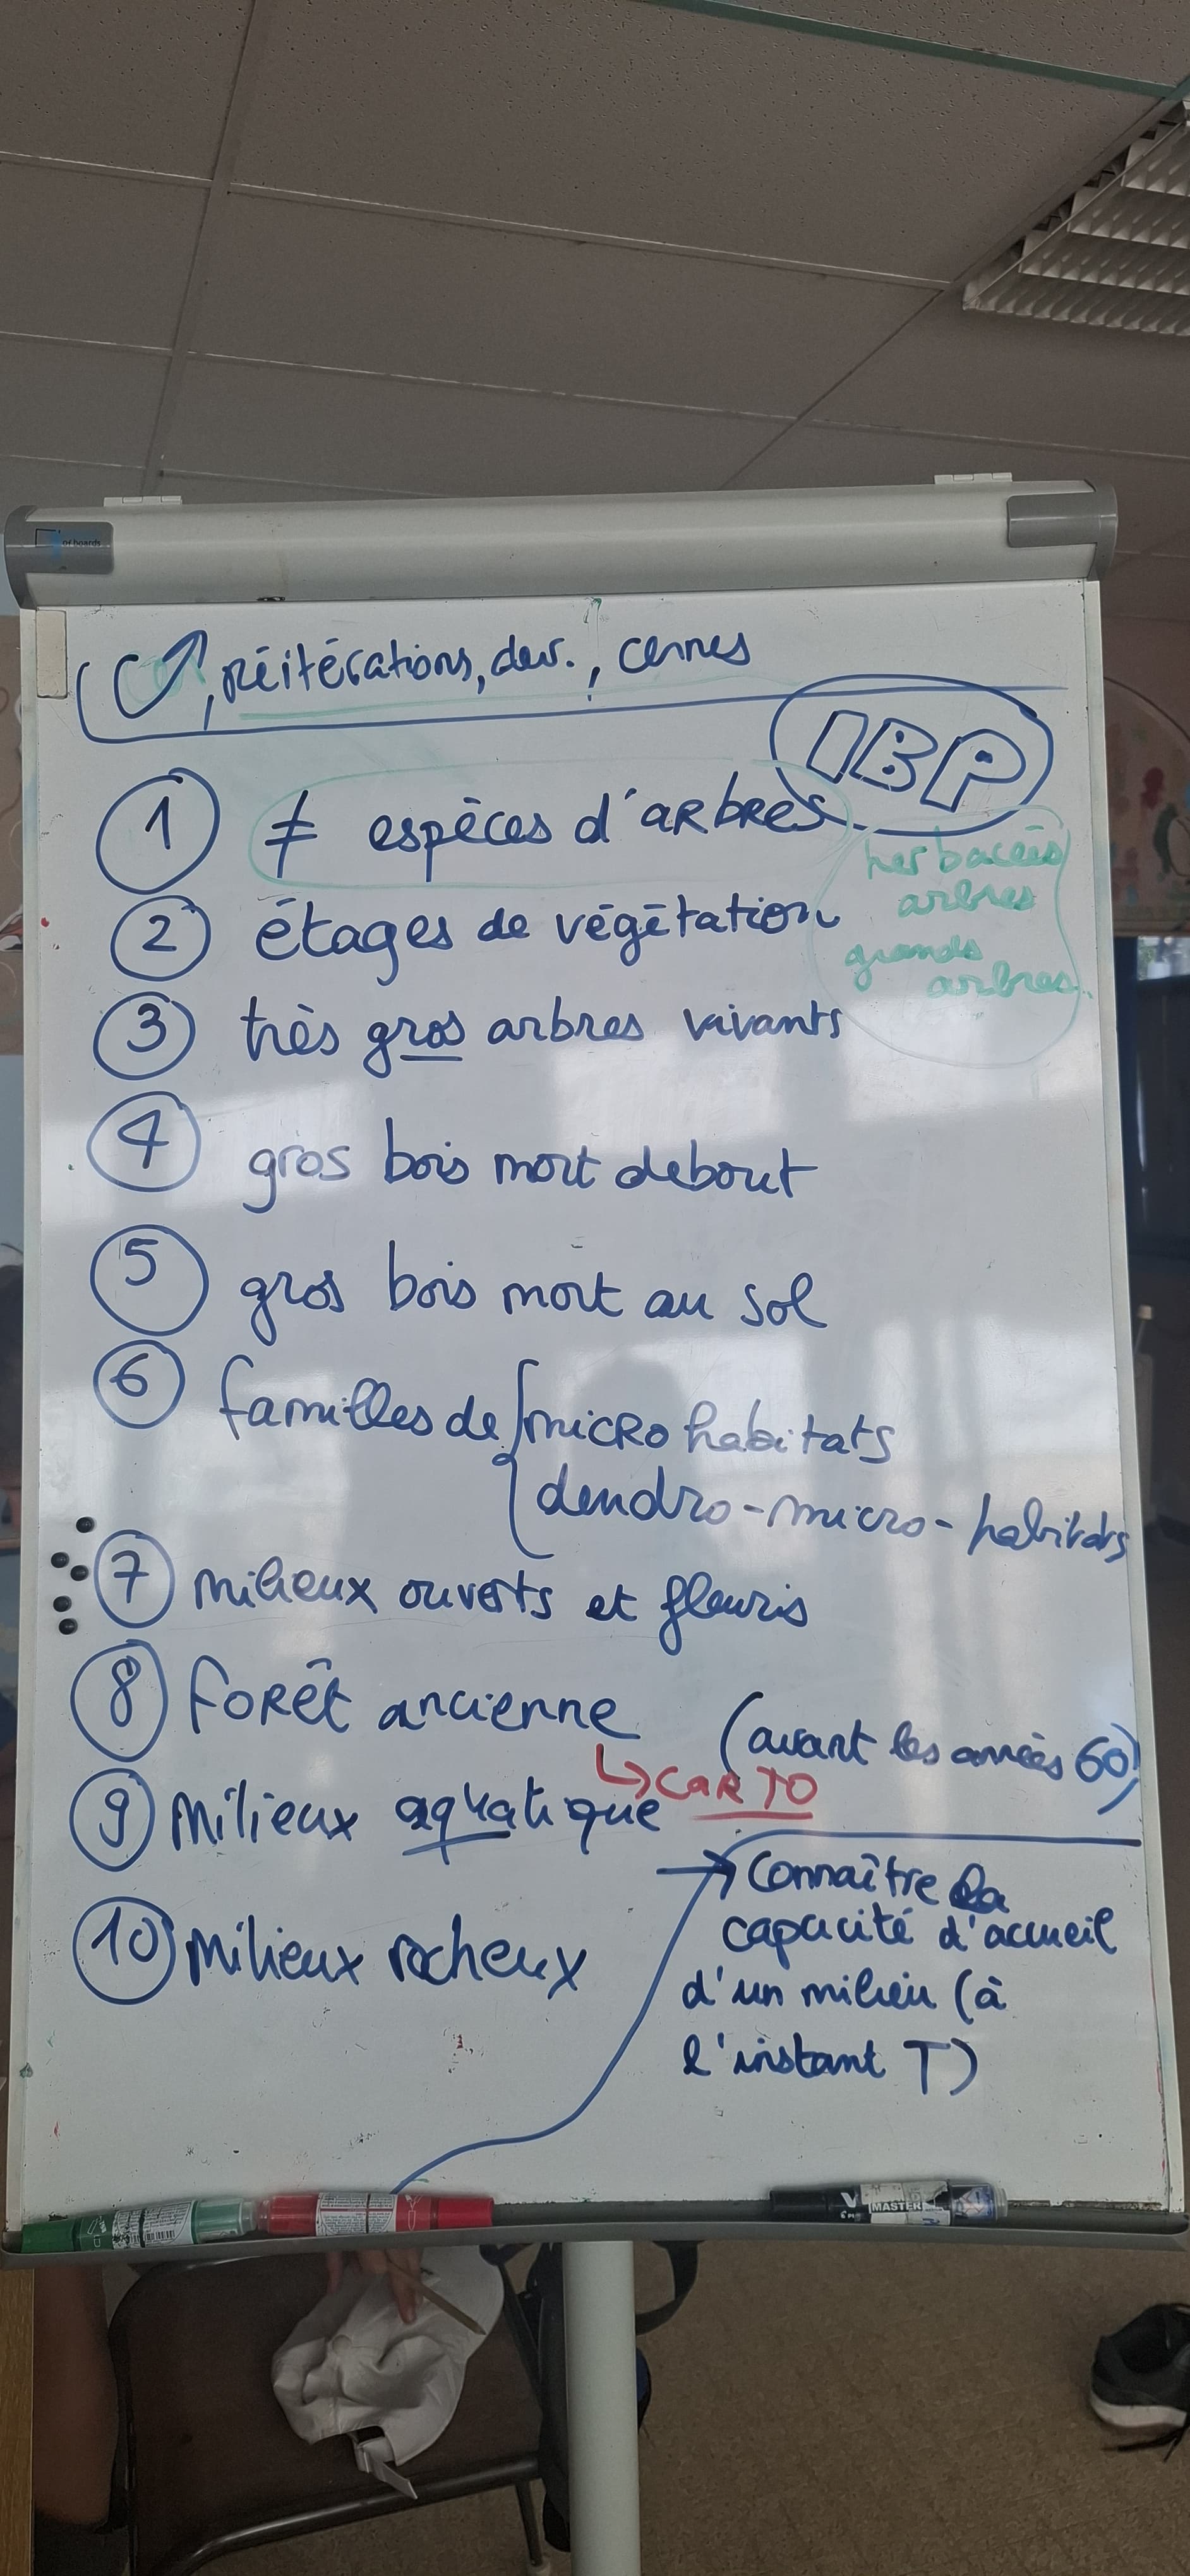 of boards
réitérations, dev., cernes
IBP
1 ≠ espèces d'arbres
herbacées
arbres
grands
arbres
2 étages de végétation
3 très gros arbres vivants
4 gros bois mort debout
5 gros bois mort au sol
6 familles de { micro habitats
dendro-micro-habitats
7 milieux ouverts et fleuris
8 forêt ancienne
(avant les années 60)
↳ CARTO
9 milieux aquatique
→ connaître la
capacité d'accueil
d'un milieu (à
l'instant T)
10 milieux rocheux
V MASTER